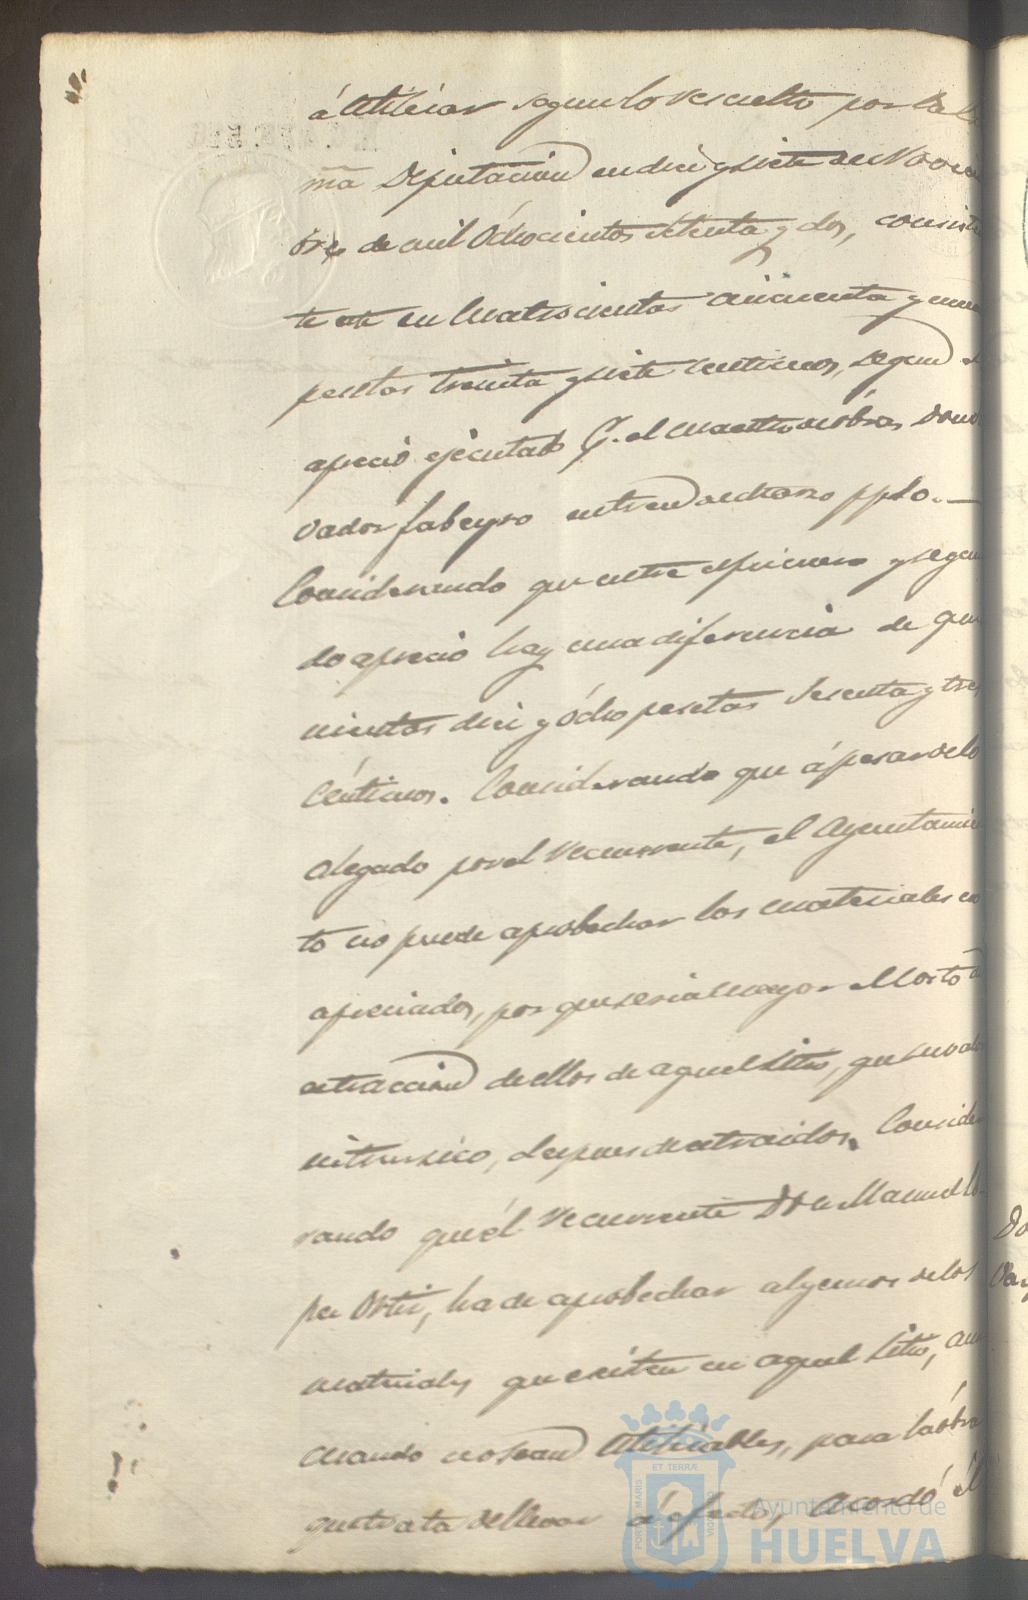 á Utilizar segun lo resuelto por la E
ma Diputacion en diez y siete de Novie
bre de mil Ochocientos setenta y dos, consist
te en Cuatrocientas cincuenta y nue
pesetas treinta y siete centimos, segun
aprecio ejecutado P. el Maestro de obras Don
vador Fabeyro en treinta de Marzo pplo.—
Considerando que entre el primero y segun
do aprecio hay una diferencia de qui
nientas diez y ócho pesetas sesenta y tres
Céntimos. Considerando que á pesar de lo
alegado por el recurrente, el Ayuntamie
to no puede aprobechar los materiales
apreciados, por que seria mayor el costo
estraccion de ellos de aquel sitio, que su
intrinsico, despues de estraidos. Conside
rando que él recurrente Don Manuel Lo
pez Ortiz, ha de aprobechar algunos de los
materiales que existen en aquel sitio, aun
cuando no sean Utilizables, para la óbra
que trata de llevar á efecto, Acordó él
Do
PORTUS MARIS ET TERRAE CUSTODIA
Ayuntamiento de
HUELVA